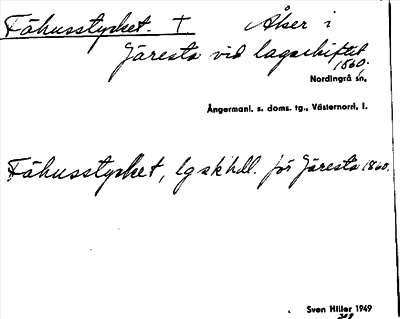 Fähusstycket. † Åker i
Järesta vid lagaskiftet
1860.
Nordingrå sn,
Ångermanl. s. doms. tg., Västernorrl. l.
Fähusstycket, lgskhdl. för Järesta 1860.
Sven Hiller 1949